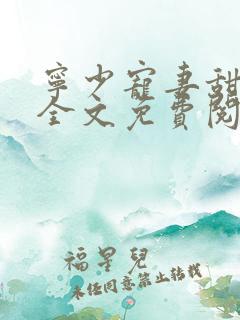 寧少寵妻甜
全文免費閱
福星兒
未經同意禁止轉載